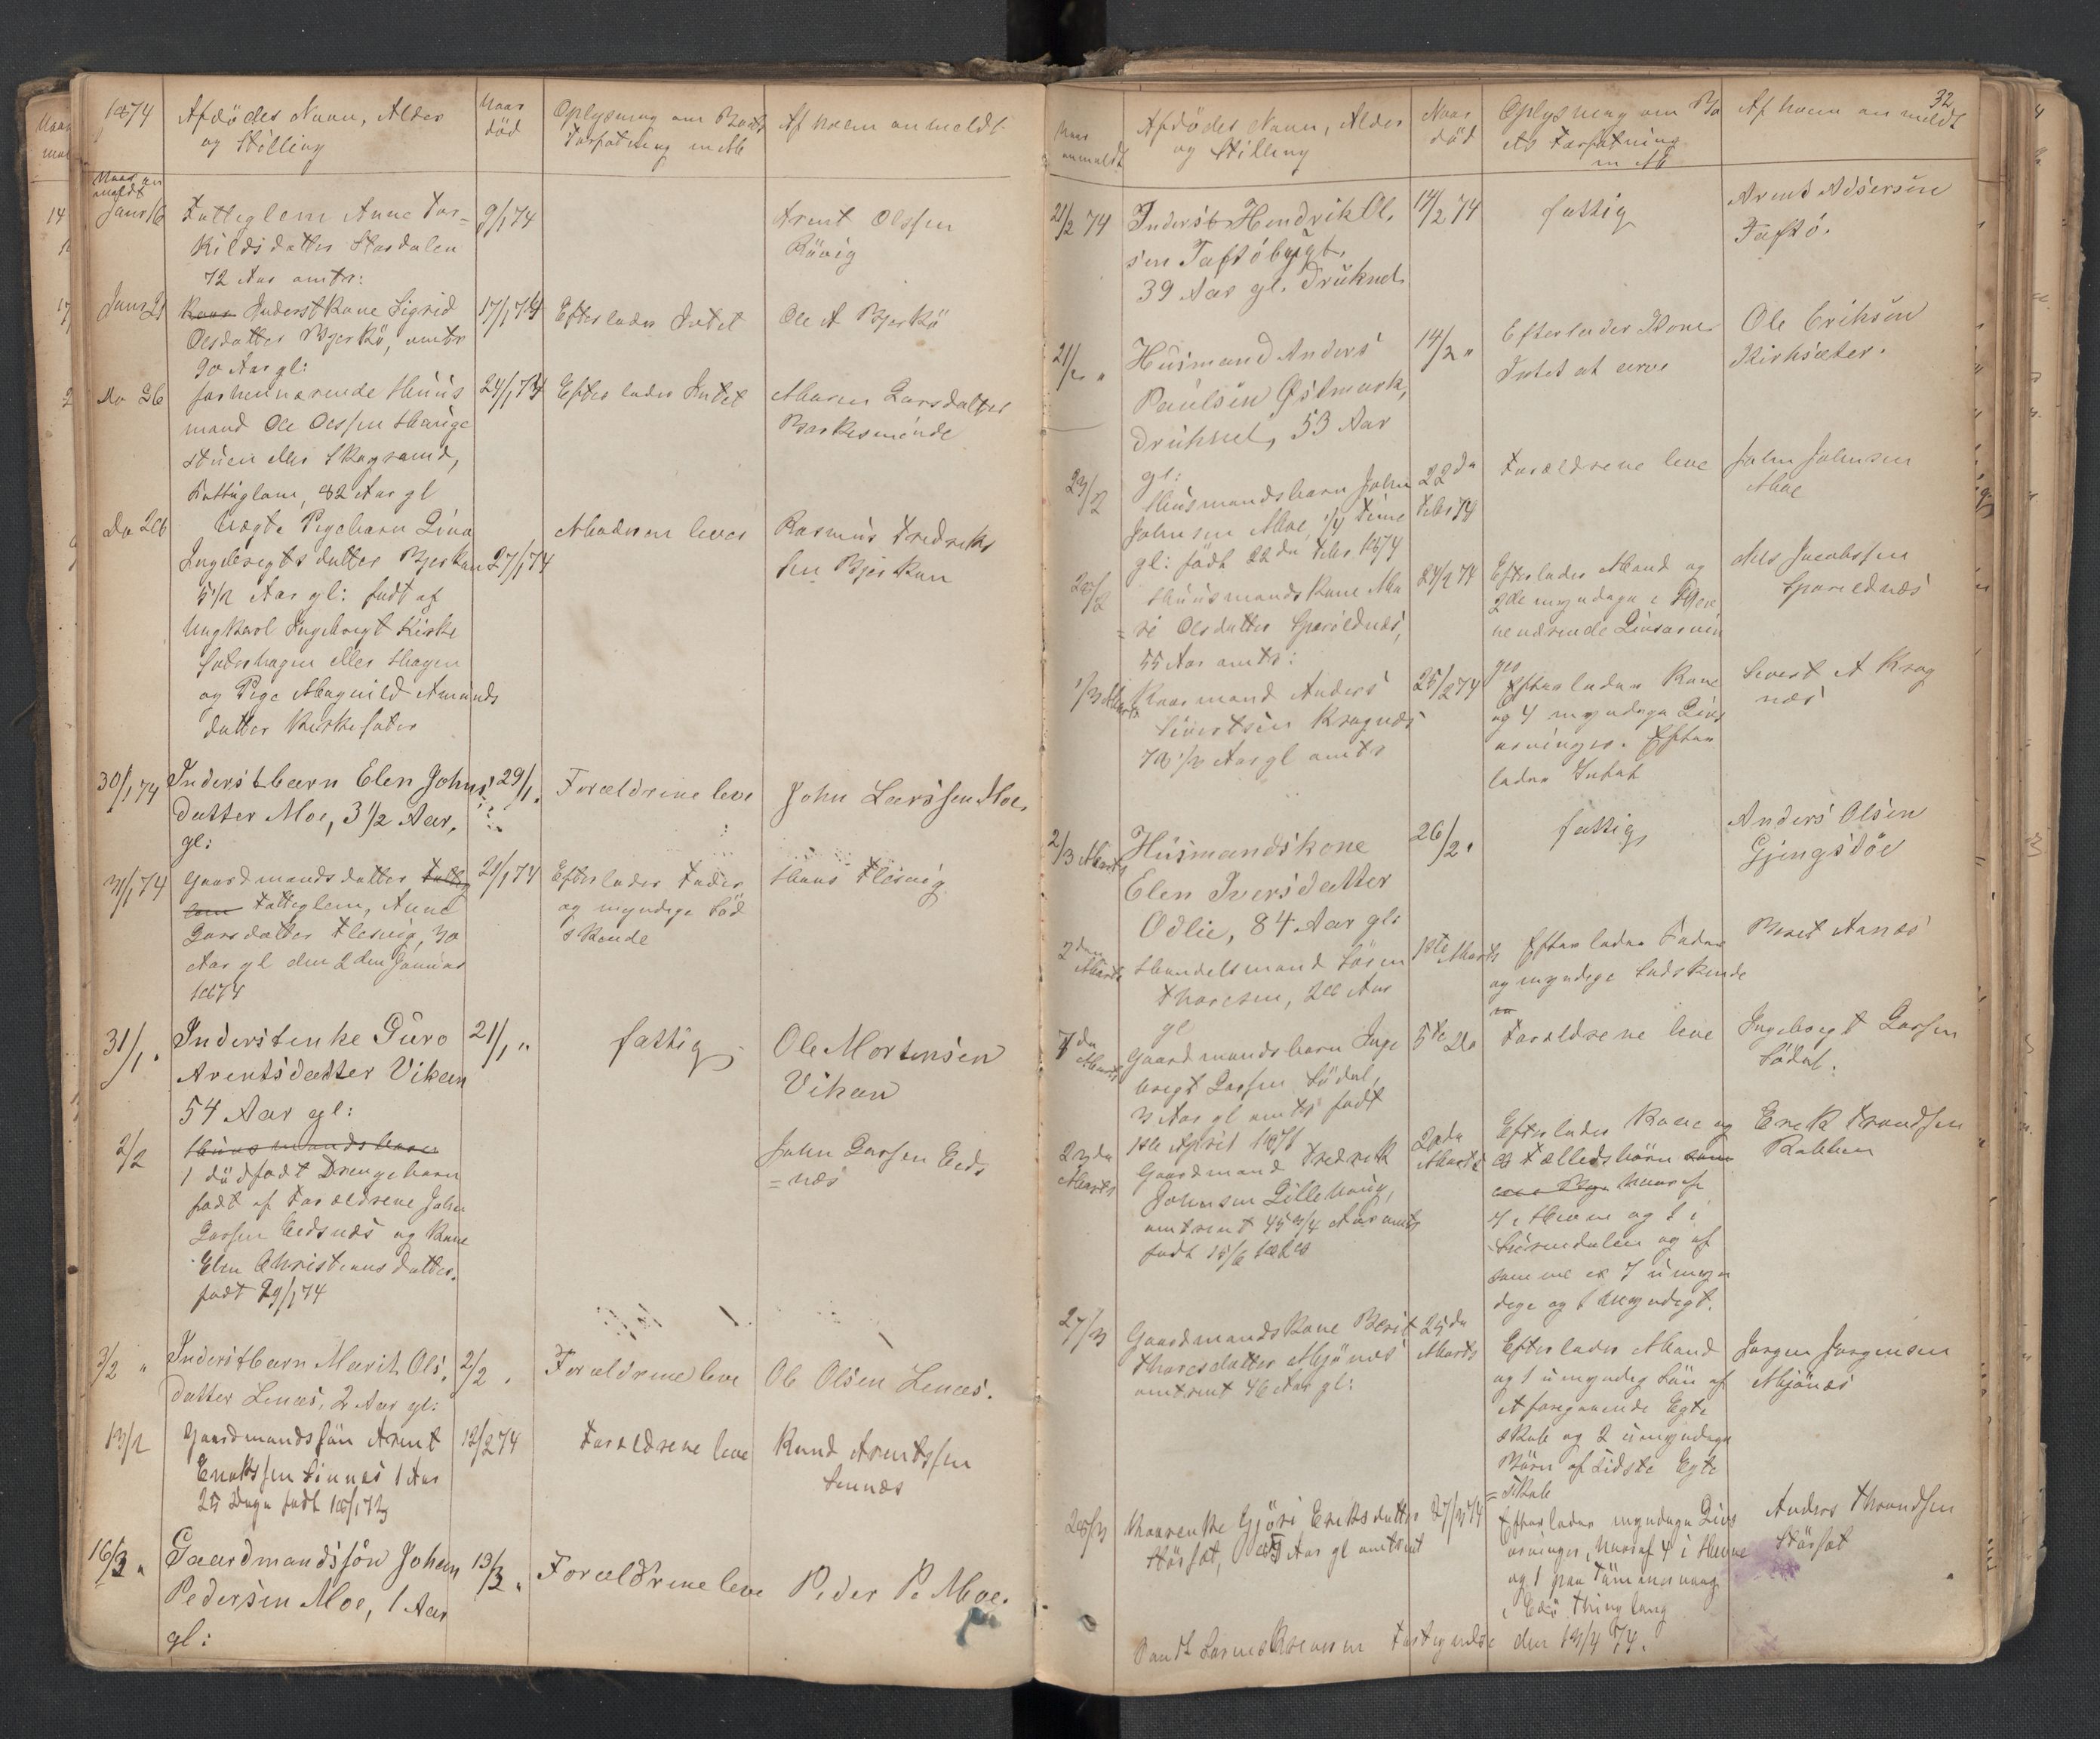 1874
Afdödes Navn, Alder
og Stilling
Naar
död
Oplysning om Boets
Forfatning m M
Af hvem anmeldt
Naar an
meldt
Janr 16
Fatteglem Anne Tor=
kildsdatter Stordalen
72 Aar omtr:
9/1 74
Arent Olssen
Rövig
Janr 21
Inderstkone Sigrid
Olsdatter Bjerkö, omtr
90 Aar gl:
17/1 74
Efterlader Intet
Ole A Bjerkö
Do 26
forhenværende Huus
mand Ole Olssen Hauge
stuen eller Skogrand,
Fattiglem, 82 Aar gl
24/1 74
Efterlader Intet
Maren Larsdatter
Do 28
Uægte Pigebarn Lina
Ingebrigtsdatter Bjerkan
5 1/2 Aar gl: født af
Ungkarl Ingebrigt Kirke
sæterhagen eller Hagen
og Pige Magnild Amunds
datter Kirkesæter
27/1 74
Moderen lever
Rasmus Fredriks
sen Bjerkan
30/1 74
Inderstbarn Elen Johns
datter Moe, 3 1/2 Aar,
gl:
29/1.
Forældrene leve
John Larssen Moe,
31/1 74
Gaardmandsdatter
Fatteglem, Anne
Larsdatter Flesvig, 30
Aar gl den 2den Januar
1874
21/1 74
Efterlader Fader
og myndige Söd
skende
Hans Flesvig
31/1 "
Inderstenke Guro
Arentsdatter Vikan
54 Aar gl:
21/1 "
fattig
Ole Mortensen
Vikan
2/2
1 dödfødt Drengebarn
født af Forældrene John
Larssen Eidsnes og Kone
Elen Christiansdatter.
født 29/1 74
John Larssen Eids
=næs
3/2 "
Inderstbarn Marit Ols.
datter Lenæs, 2 Aar gl:
2/2 .
Forældrene leve
Ole Olsen Lenæs.
13/2
Gaardmandssön Arent
Knutssen Sinnes 1 Aar
25 Dage født 18/1 73
12/2 74
Forældrene leve
Knud Arentssen
Sinnæs
16/3 "
Gaardmandssön Johan
Pedersen Moe, 1 Aar
gl:
13/3 "
Forældrene leve
Peder P. Moe.
32
Naar
anmeldt
Afdödes Navn, Alder
og Stilling
Naar
död
Oplysning om Bo
ets Forfatning
m M
Af hvem anmeldt
21/2 74
Inderst Hendrik Ol.
sen Taftöbygt,
39 Aar gl. Druknet
14/2 74
fattig
Arnt Adsersen
Taftö.
21/2 "
Husmand Anders
Paulsen Østmark,
druknet, 53 Aar
gl:
14/2 "
Efterlader Kone
Intet at arve
Ole Eriksen
Kirksæter.
23/2
Husmandsbarn John
Johnsen Moe, 1/4 Time
gl: født 22de Febr 1874
22de
Febr 74
Forældrene leve
John Johnsen
Moe
25/2
Huusmandskone Ma
=ri Olsdatter Sparildnæs,
55 Aar omtr:
24/2 74
Efterlader Mand og
2de myndige i
nærende Livsarvin
ger
Nils Jacobssen
Sparildnæs
1/3 Marts
Kaarmand Anders
Sivertsen Kragnæs
70 1/2 Aar gl omtr
25/2 74
Efterlader Kone
og 4 myndige Livs
arvinger. Efter
lader Intet
Sivert A Krag
næs
2/3 Marts
Husmandskone
Elen Iversdatter
Odlie, 84 Aar gl:
26/2.
fattig
Anders Olsen
Gjengstöe
2den
Marts
Handelsmand Sören
Thoresen, 28 Aar
gl
1ste Marts
Efterlader Fader
og myndige Sødskende
Beret Aanes
7de
Marts
Gaardmandsbarn Inge
brigt Larssen Södal,
3 Aar gl omtr født
1ste April 1871
5te Do
Forældrene leve
Ingebrigt Larssen
Södal.
23de
Marts
Gaardmand Fredrik
Johnsen Lillehaug,
omtrent 45 3/4 Aar omtr
født 15/6 1828
20de
Marts
Efterlader Kone og
8 Fællesbörn
hvoraf
7 i Hevne og 1 i
Surendalen og af
samme er 7 umyn
dige og 1 myndigt.
Erik Trondsen
27/3
Gaardmandskone Berit
Thoresdatter Mjönes
omtrent 46 Aar gl:
25de
Marts
Efterlader Mand
og 1 umyndig Sön af
et foregaaende Egte
skab og 2 umyndige
Börn af sidste Egte
=skab
Jørgen Jørgensen
Mjönes
28/3
Kaarenke Gjöri Eriksdatter
Störset, Aar gl omtrent
27/3 74
Efterlader myndige Livs
arvinger, hvoraf 4 i Hevne
og 1 paa
i Edö Thinglaug
Anders Throndsen
Störset
Sandt Sorenskriveren den 13/4 74.